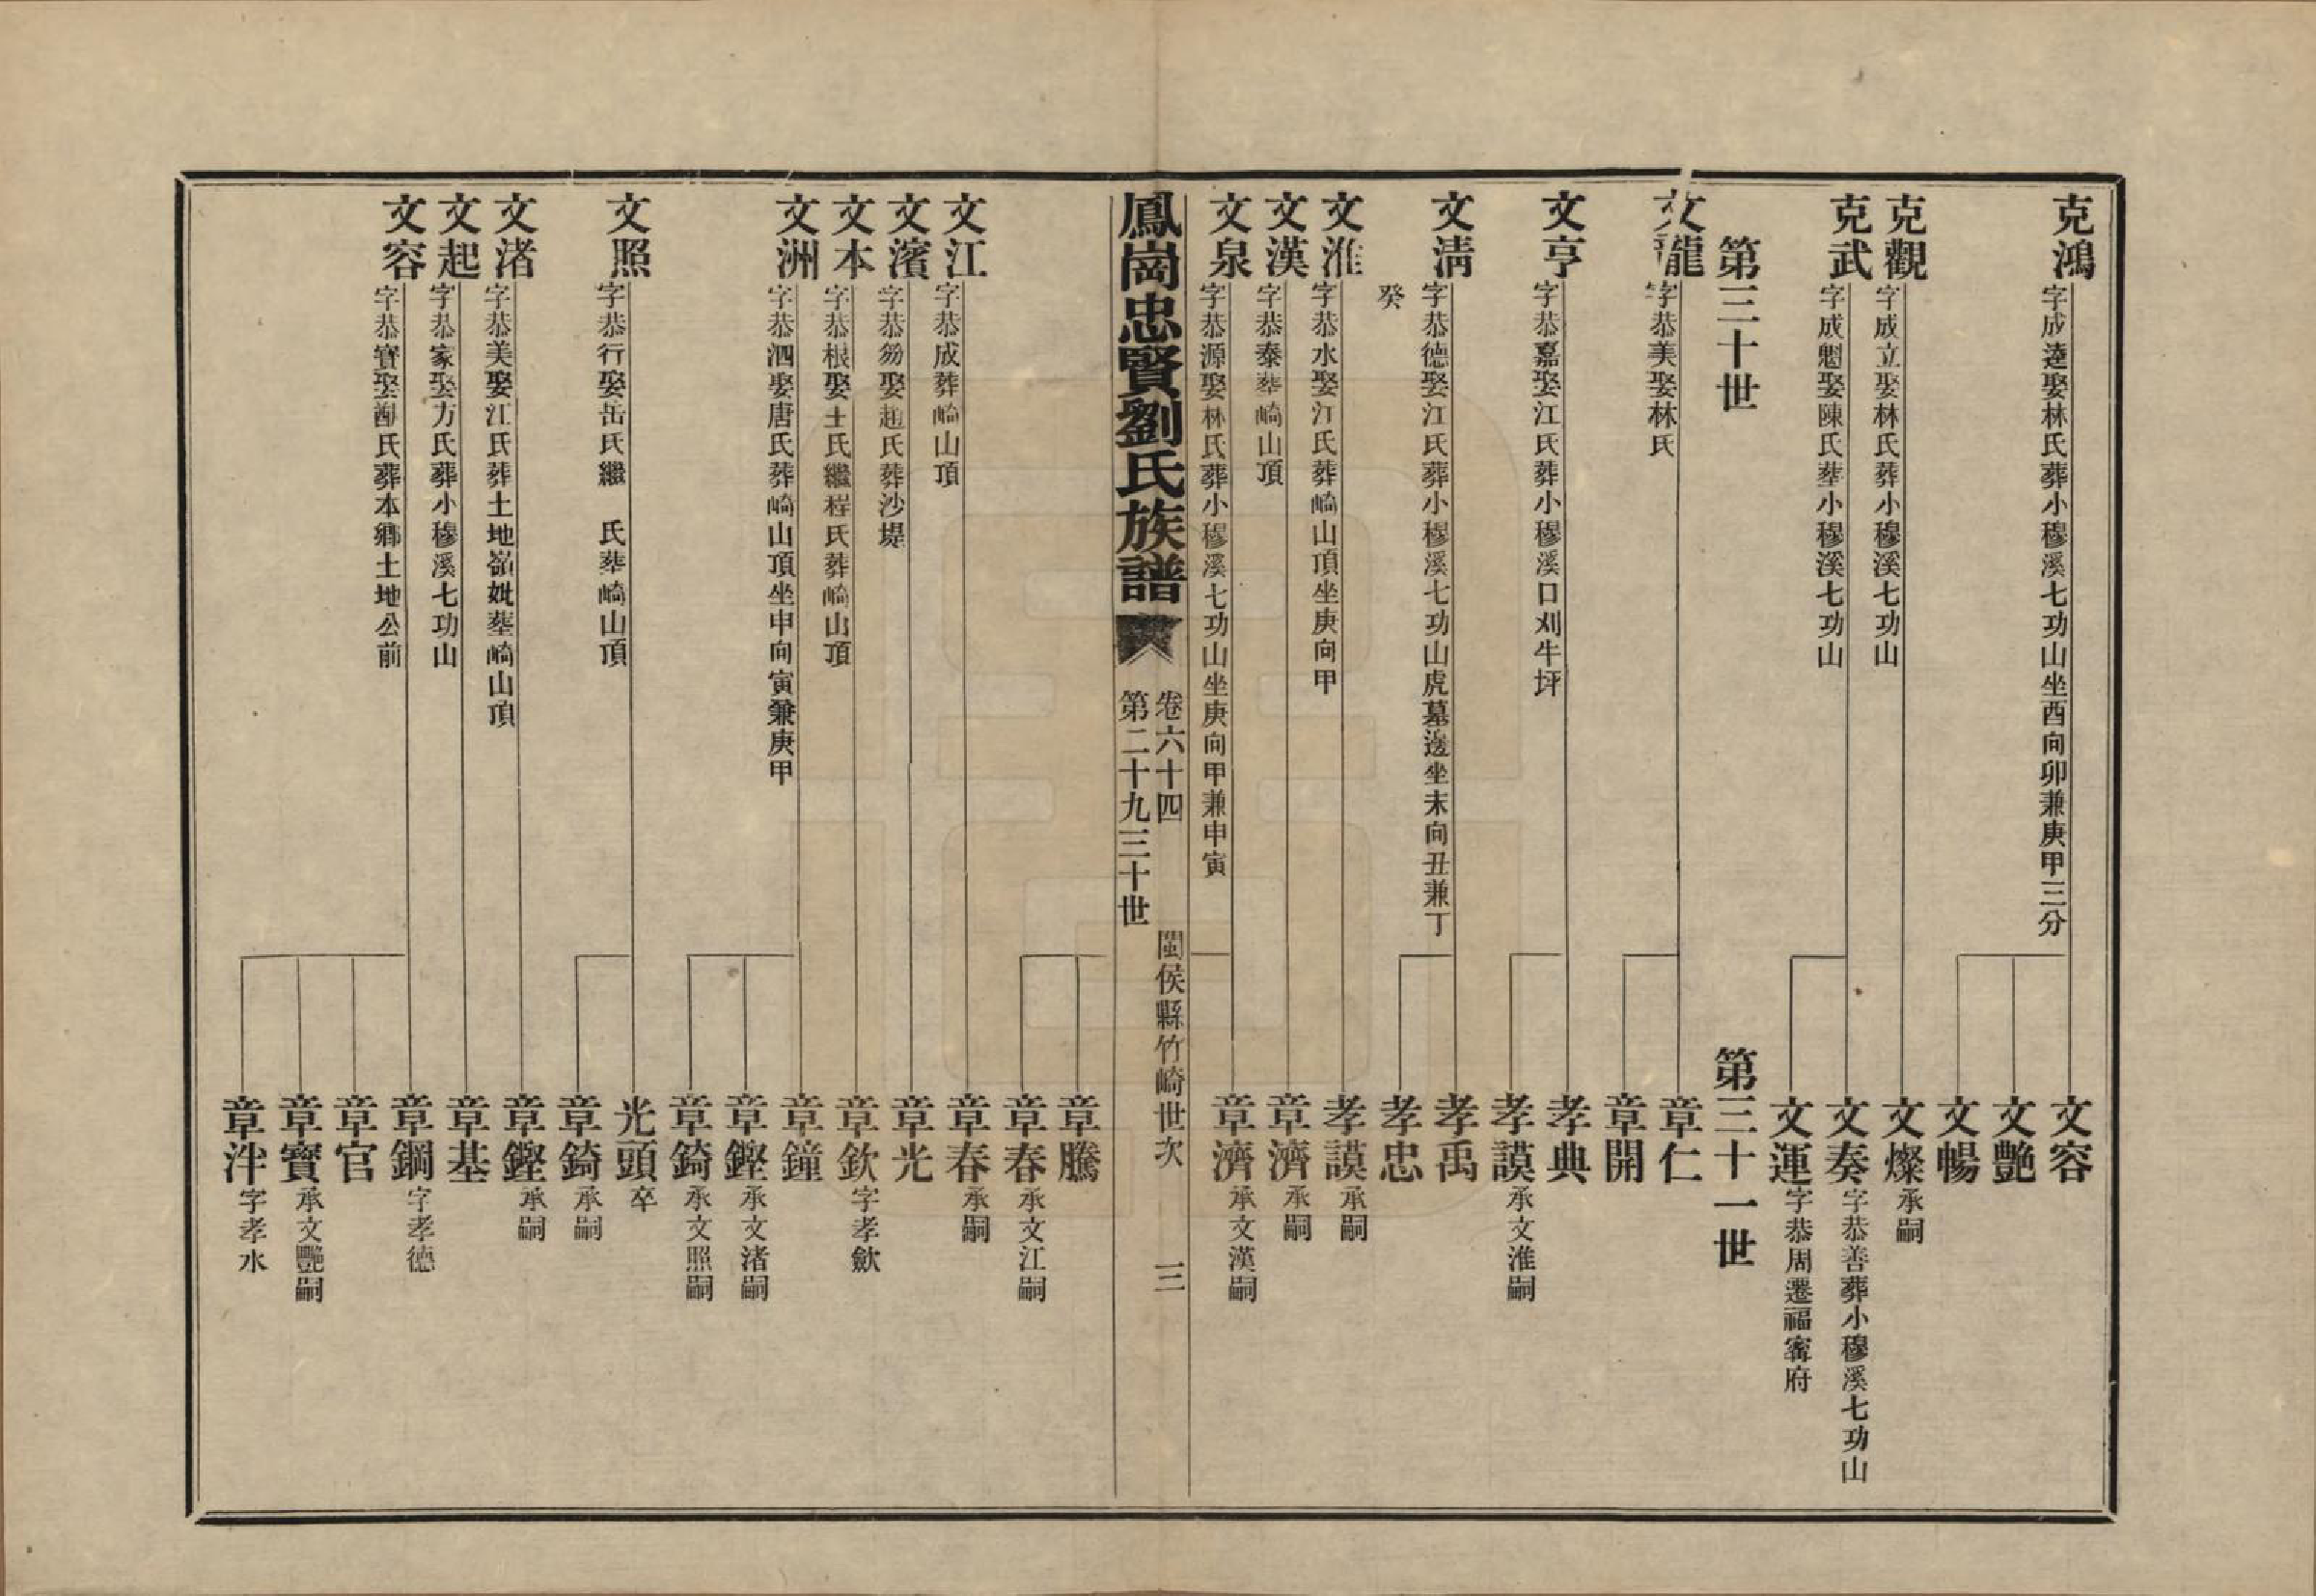 克鴻 字成逵娶林氏葬小穆溪七功山坐酉向卯兼庚甲三分
文容
文艷
文暢
克觀 字成立娶林氏葬小穆溪七功山
文燦 承嗣
克武 字成魁娶陳氏葬小穆溪七功山
文奏 字恭善葬小穆溪七功山
文運 字恭周遷福寗府
第三十世
第三十一世
文龍 字恭美娶林氏
章仁
章開
文亨 字恭嘉娶江氏葬小穆溪口刈牛坪
孝典
孝謨 承文淮嗣
文清 字恭德娶江氏葬小穆溪七功山虎墓邊坐未向丑兼丁
癸
孝禹
孝忠
文淮 字恭水娶江氏葬崎山頂坐庚向甲
孝謨 承嗣
文漢 字恭泰葬崎山頂
章濟 承嗣
文泉 字恭源娶林氏葬小穆溪七功山坐庚向甲兼申寅
章濟 承文漢嗣
鳳崗忠賢劉氏族譜
卷六十四
第二十九三十世
閩侯縣竹崎世次
三
章騰
章春 承文江嗣
文江 字恭成葬崎山頂
章春 承嗣
文濱 字恭芴娶趙氏葬沙堤
章光
文本 字恭根娶王氏繼程氏葬崎山頂
章欽 字孝歛
文洲 字恭泗娶唐氏葬崎山頂坐申向寅兼庚甲
章鐘
章鏗 承文渚嗣
章錡 承文照嗣
文照 字恭行娶岳氏繼 氏葬崎山頂
光頭 卒
章錡 承嗣
文渚 字恭美娶江氏葬土地嶺妣葬崎山頂
章鏗 承嗣
文起 字恭家娶方氏葬小穆溪七功山
章基
文容 字恭寶娶謝氏葬本鄉土地公前
章鋼 字孝德
章官
章寶 承文艷嗣
章泮 字孝水